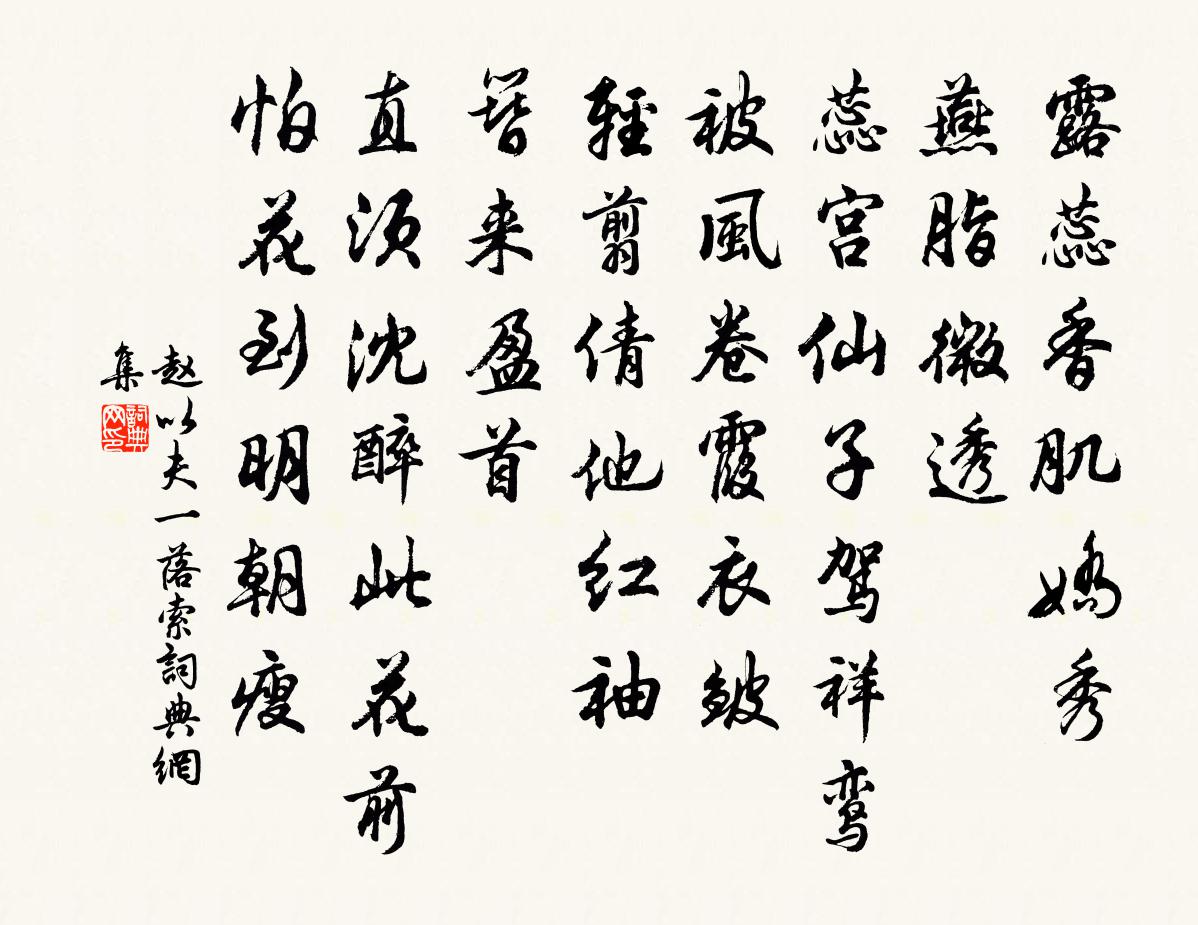 露蕊香肌嬌秀
燕脂微透
蕊宫仙子駕祥鸾
被風卷霞衣皺
輕翦倩他红袖
簪来盈首
直须沈醉此花前
怕花到明朝瘦
赵以夫一落索詞典網
集
詞典网印